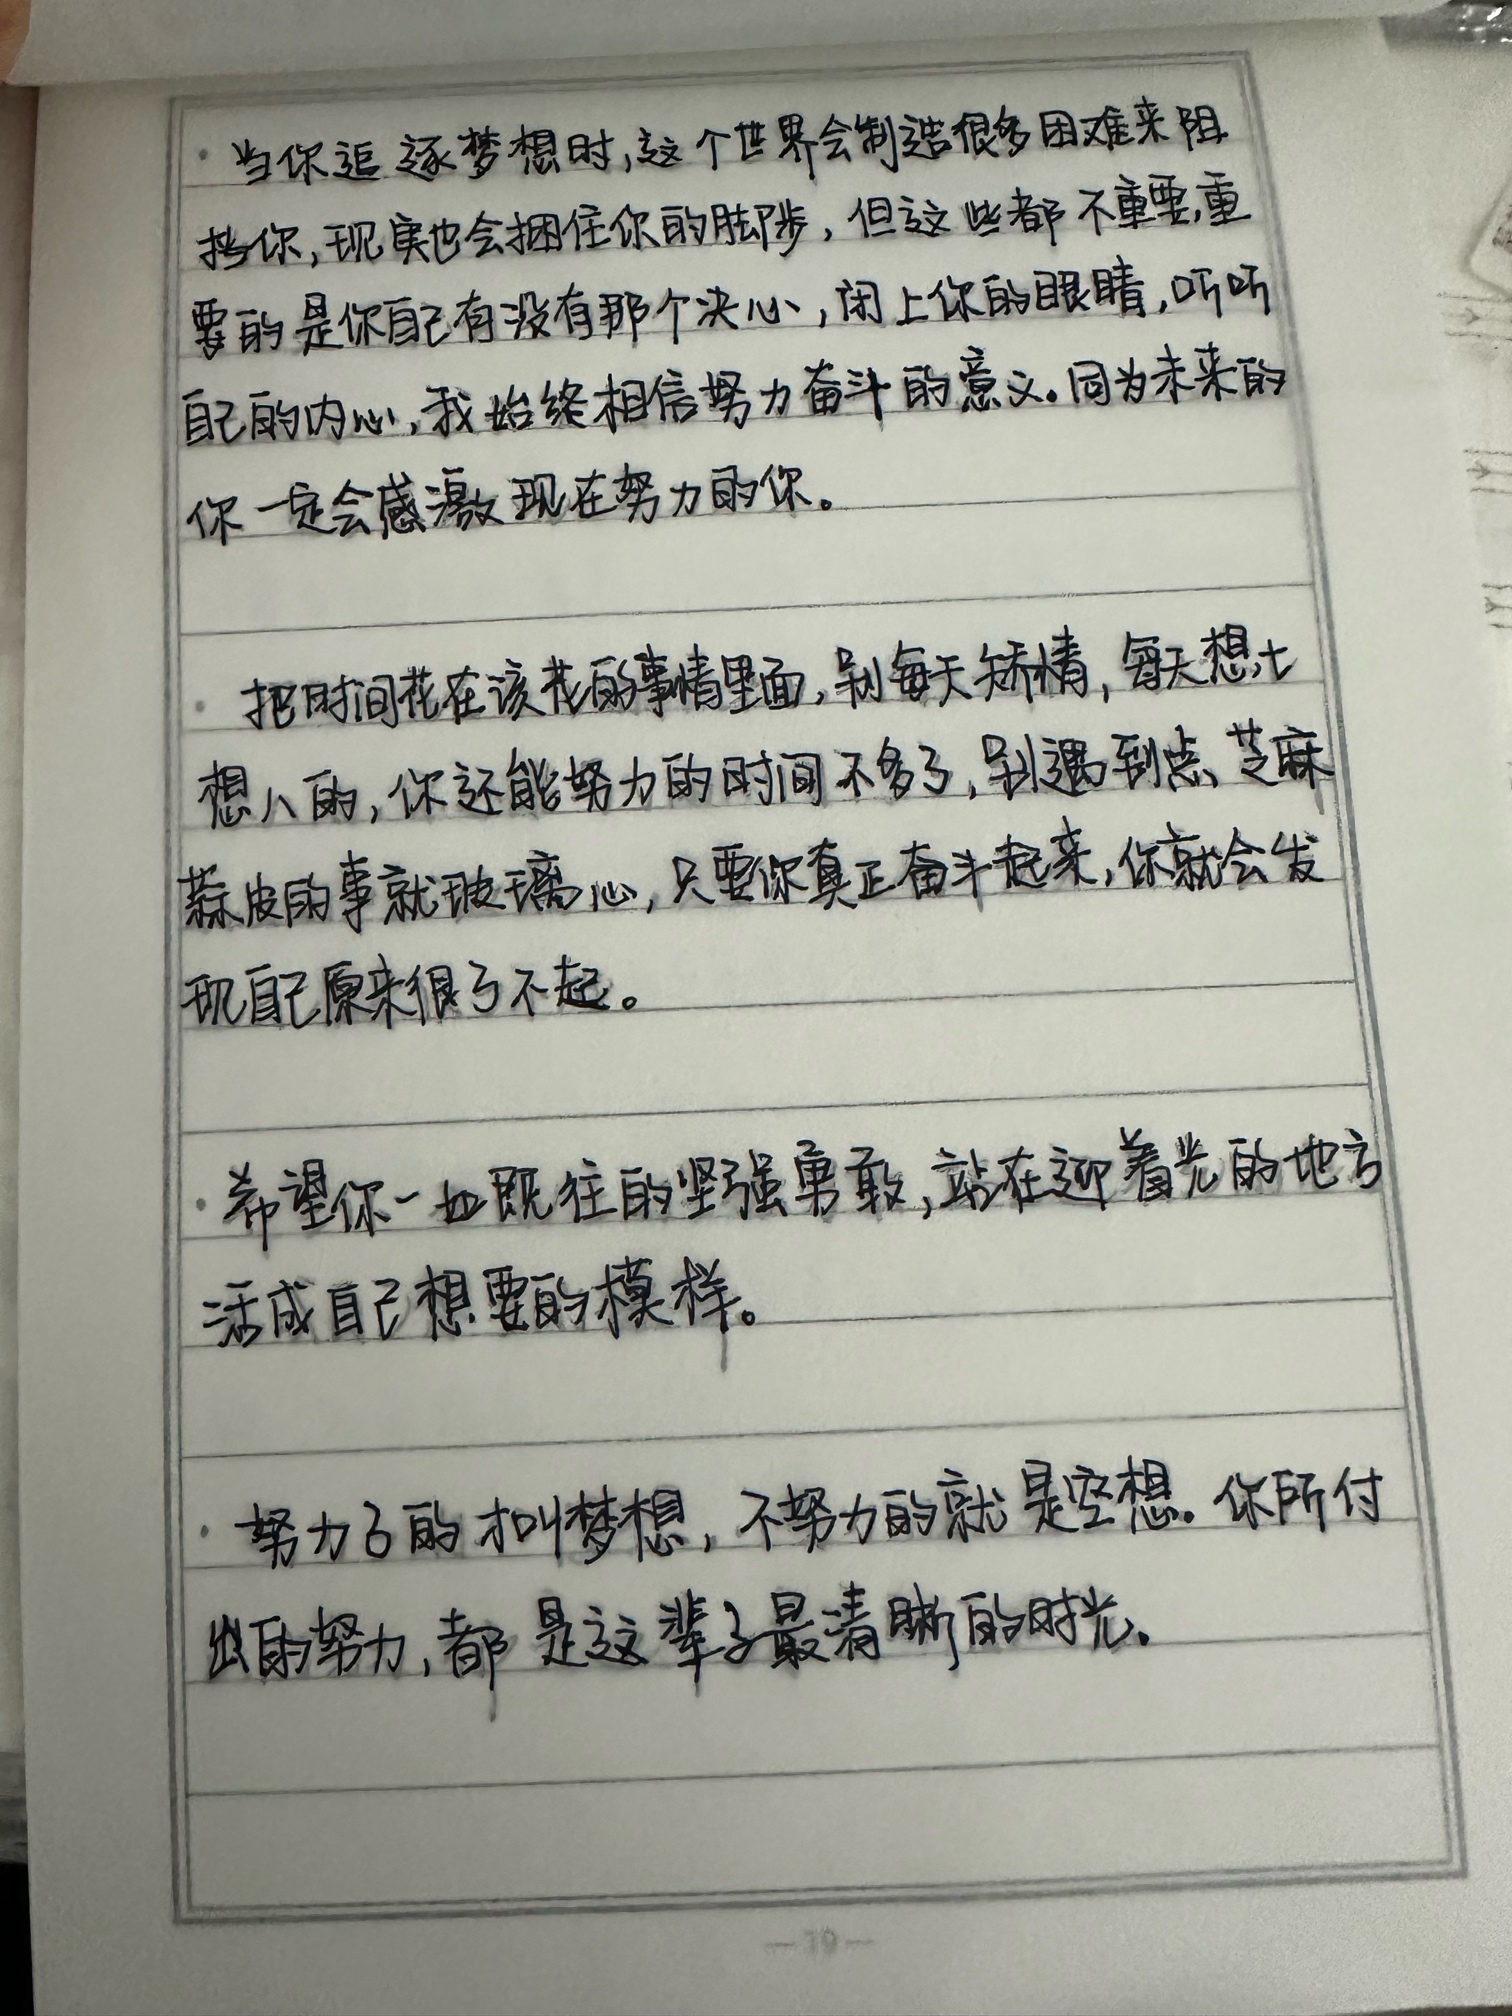 · 当你追逐梦想时,这个世界会制造很多困难来阻
挡你,现实也会捆住你的脚步,但这些都不重要,重
要的是你自己有没有那个决心,闭上你的眼睛,听听
自己的内心,我始终相信努力奋斗的意义。因为未来的
你一定会感激现在努力的你。
· 把时间花在该花的事情里面,别每天矫情,每天想七
想八的,你还能努力的时间不多了,别遇到点芝麻
蒜皮的事就玻璃心,只要你真正奋斗起来,你就会发
现自己原来很了不起。
· 希望你一如既往的坚强勇敢,站在迎着光的地方
活成自己想要的模样。
· 努力了的才叫梦想,不努力的就是空想。你所付
出的努力,都是这辈子最清晰的时光。
— 19 —